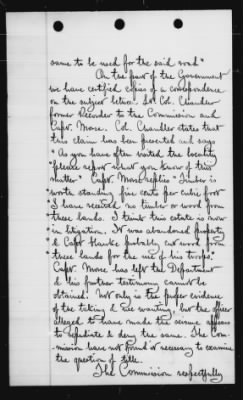 same to be used for the said road"
On the part of the Government
we have certified copies of a correspondence
on the subject between Lt. Col. Chandler
former Recorder to the Commission and
Capt. Morse. Col. Chandler states that
this claim has been presented and says
"As you have often visited the locality
please report what you know of this
matter". Capt. Morse replies "Timber is
worth standing five cents per cubic foot
I have received no timber or wood from
these lands. I think this estate is now
in litigation. It was abandoned property
& Capt. Hawke probably cut wood from
these lands for the use of his troops."
Capt. Morse has left the Department
& his further testimony cannot be
obtained. Not only is the proper evidence
of the taking & use wanting, but the officer
alleged to have made the seizure appears
to repudiate & deny the same. The Com-
mission have not found it necessary to examine
the question of title.
The Commission respectfully